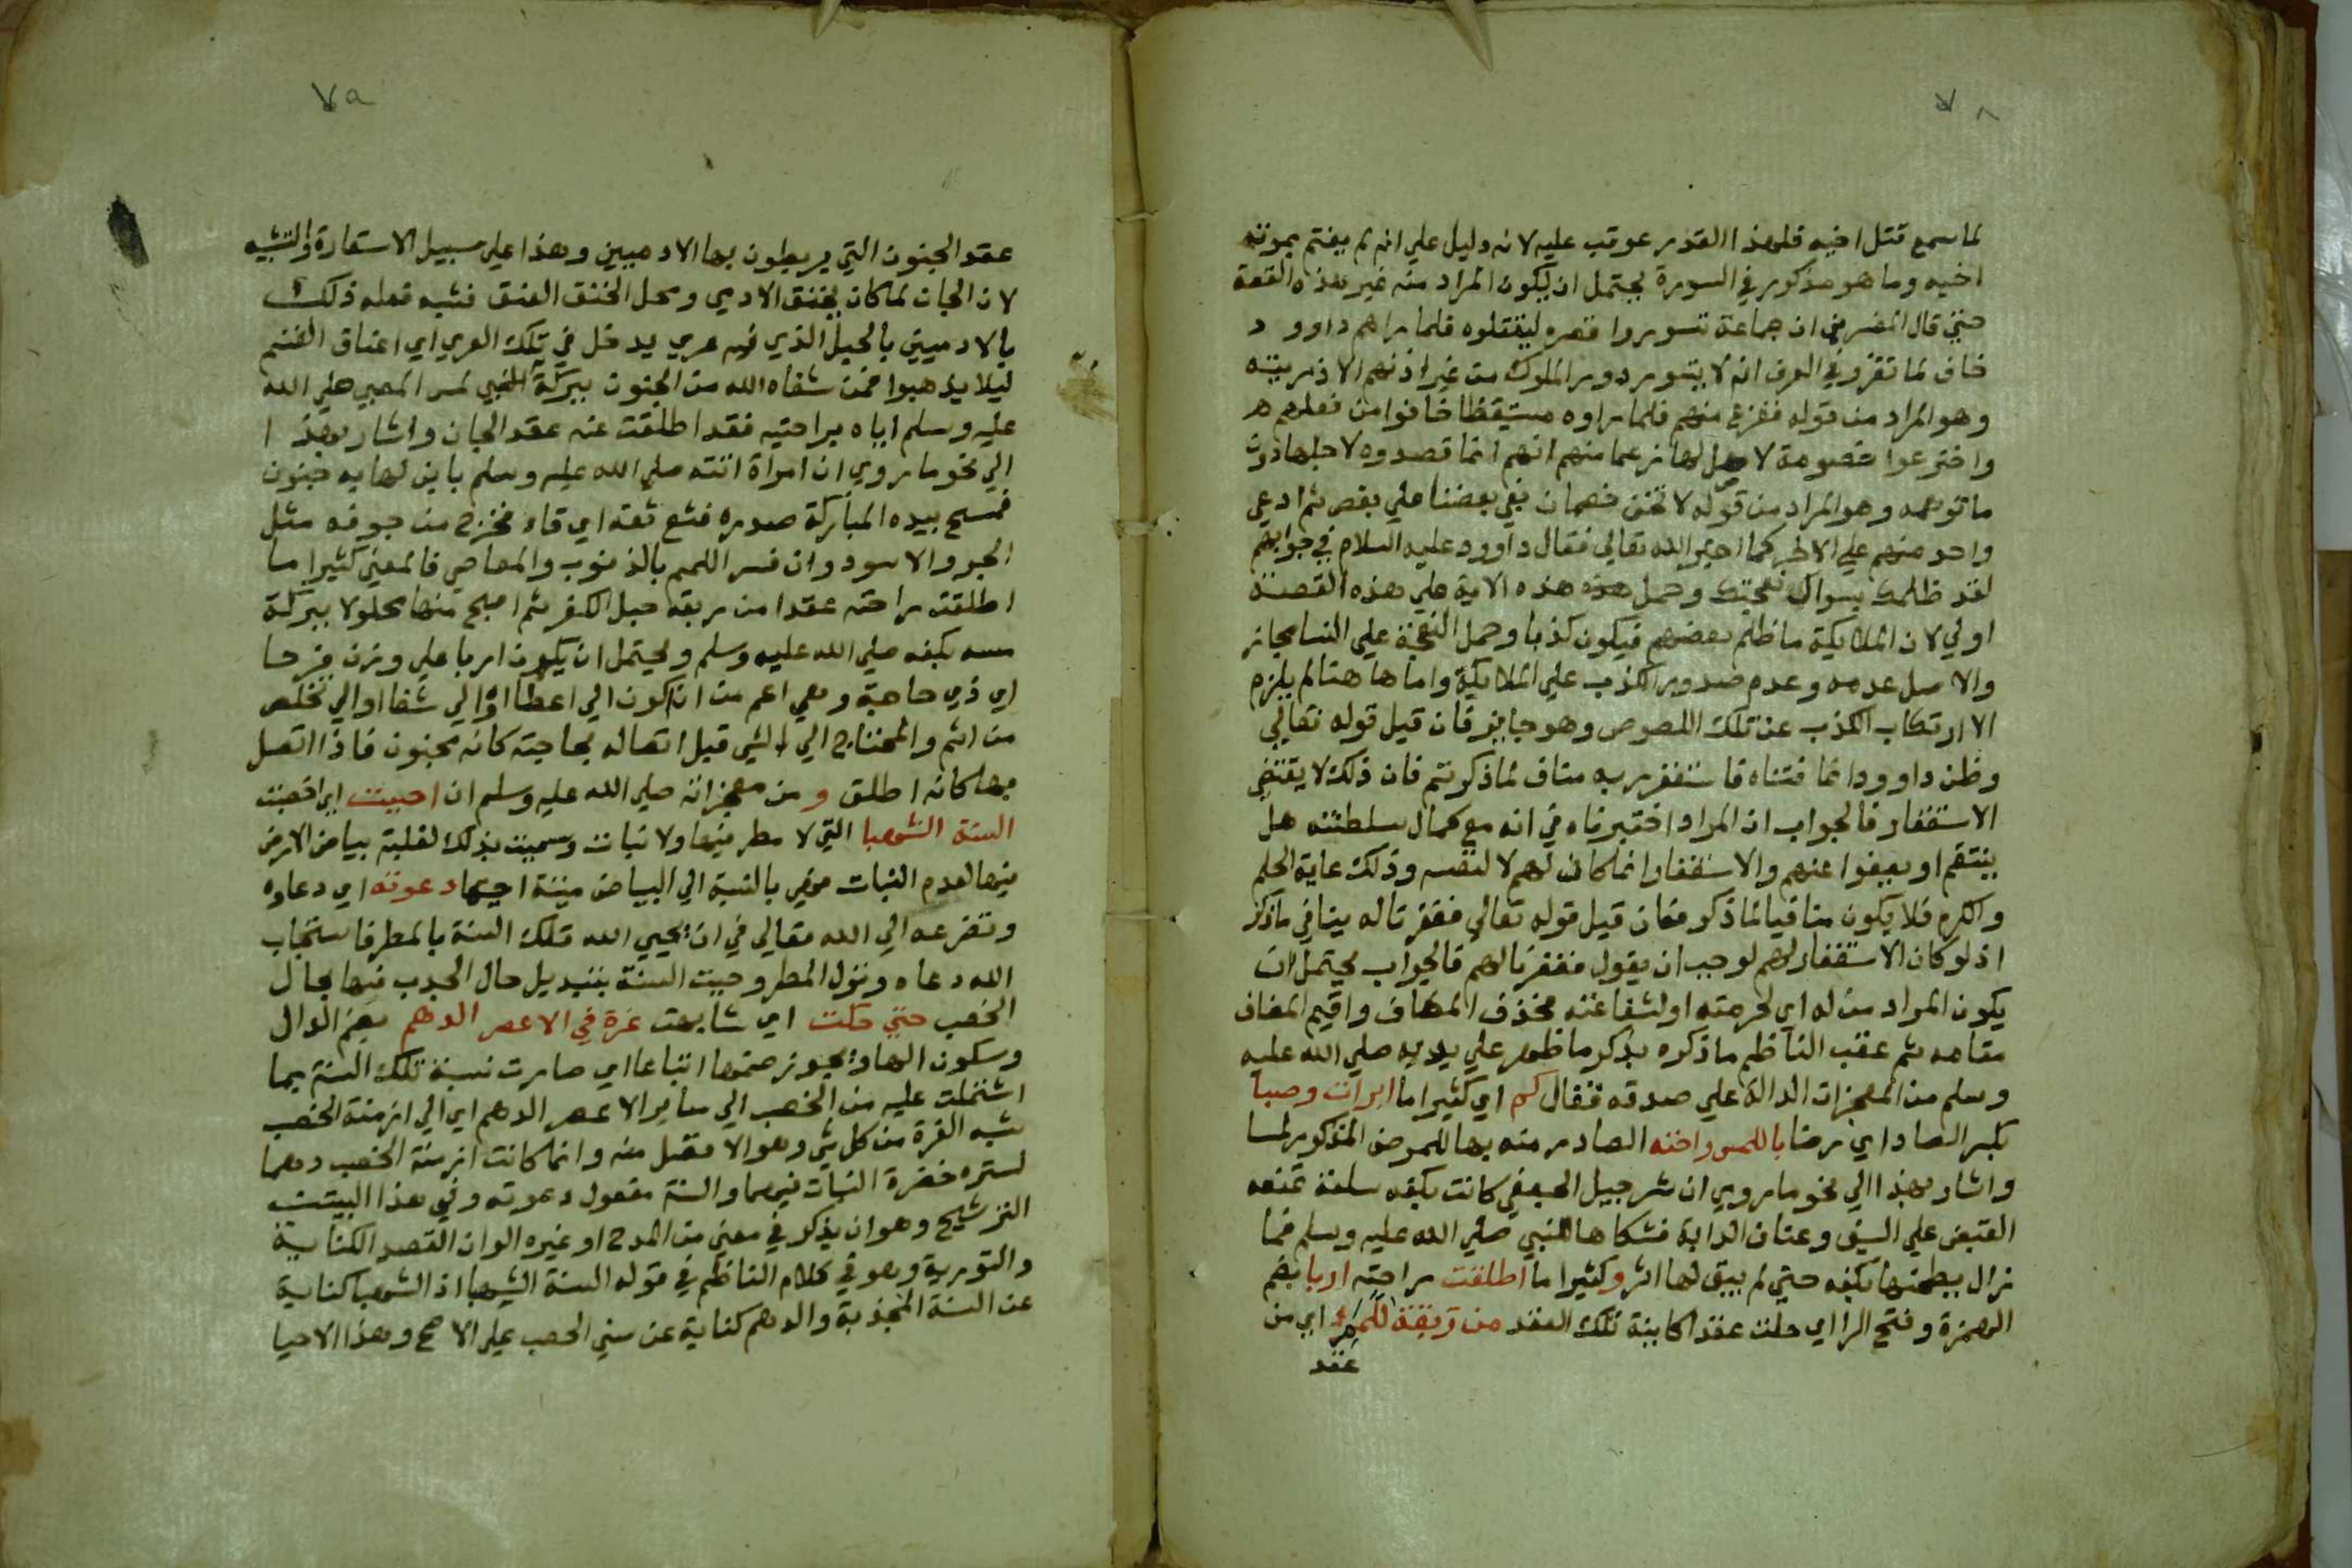 ٧٨
لما سمع قتل اخيه فلهذا القدر عوقب عليه لانه دليل علي انه لم يغتم بموته
اخيه وما هو مذكور في السورة يحتمل ان يكون المراد منه غير هذه القصة
حتي قال المفسرين ان جماعة تسوروا قصره ليقتلوه فلما راهم داوود
خاف لما تقرر في العرف انه لا يتسور دور الملوك من غير اذنهم الا ذو ريبة
وهو المراد من قوله ففزع منهم فلما راوه مستيقظا خافوا من فعلهم
واخترعوا خصومة لا اصل لها زعما منهم انهم انما قصدوه لاجلها دون
ما توهمه وهو المراد من قوله لا تخف خصمان بغي بعضنا علي بعض ثم ادعي
واحد منهم علي الاخر كما اخبر الله تعالي فقال داوود عليه السلام في جوابهم
لقد ظلمك بسوال نعجتك وحمل هذه الاية علي هذه القصة
اولي لان الملايكة ما ظلم بعضهم فيكون كذبا وحمل النعجة علي النسا مجاز
والاصل عدمه وعدم صدور الكذب علي الملايكة واما هاهنا لم يلزم
الا ارتكاب الكذب عن تلك اللصوص وهو جايز فان قيل قوله تعالي
وظن داوود انما فتناه فاستغفر ربه مناف لما ذكرتم فان ذلك لا يقتضي
الاستغفار فالجواب ان المراد اختبرناه في انه مع كمال سلطنته هل
ينتقم او يعفوا عنهم والاستغفار انما كان لهم لا لنفسه وذلك غاية الحلم
والكرم فلا يكون منافيا لما ذكر فان قيل قوله تعالي فغفرنا له ينافي ما ذكر
اذ لو كان الاستغفار لهم لوجب ان يقول فغفرنا لهم فالجواب يحتمل ان
يكون المراد من له اي لحرمته او لشفاعته فحذف المضاف واقيم المضاف
مقامه ثم عقب الناظم ما ذكره بذكر ما ظهر علي يديه صلي الله عليه
وسلم من المعجزات الدالة علي صدقه فقال كم اي كثيرا ما ابرات وصبا
بكسر الصاد اي مرضا باللمس راحته الصادر منه بها للمرض المذكور لمسا
واشار بهذا الي نحو ما روي ان شرجيل الجعفي كانت بكفه سلعة تمنعه
القبض علي السيف وعنان الدابة فشكاها للنبي صلي الله عليه وسلم فما
زال يطحنها بكفه حتي لم يبق لها اثر وكثيرا ما اطلقت راحته اربا بضم
الهمزة وفتح الرا اي حلت عقدا كاينة تلك العقد من ربقة اللمم اي من
عقد
٧٩
عقد الجنون التي يربطون بها الادميين وهذا علي سبيل الاستعارة والتشبيه
لان الجان لما كان يخنق الادمي ومحل الخنق العنق فشبه فعله ذلك
بالادميين بالحبل الذي فيه عري يدخل في تلك العري اي اعناق الغنم
ليلا يذهبوا فمن شفاه الله من الجنون ببركة النبي لمس المصبي صلي الله
عليه وسلم اياه براحتيه فقد اطلقت عنه عقد الجان واشار بهذا
الي نحو ما روي ان امراة اتته صلي الله عليه وسلم بابن لها به جنون
فمسح بيده المباركة صدره فثع ثعة اي قاء فخرج من جوفه مثل
الجرو الاسود وان فسر اللمم بالذنوب والمعاصي فالمعني كثيرا ما
اطلقت راحته عقدا من ربقة حبل الكفر ثم اصبح منها محلولا ببركة
مسه بكفه صلي الله عليه وسلم ويحتمل ان يكون اربا علي وزن فرحا
اي ذي حاجة وهي اعم من ان تكون الي اعطا او الي شفا او الي تخلص
من اثم والمحتاج الي الشي قبل اتصاله بحاجته كانه مجنون فاذا اتصل
بها كانه اطلق ومن معجزاته صلي الله عليه وسلم ان احييت اي اخصبت
السنة الشهبا التي لا مطر فيها ولا نبات وسميت بذلك لغلبة بياض الارض
فيها لعدم النبات فهي بالنسبة الي البياض ميتة احيتها دعوته اي دعاوه
وتضرعه الي الله تعالي في ان يحيي الله تلك السنة بالمطر فاستجاب
الله دعاه ونزل المطر وحييت السنة بتبديل حال الجدب فيها بحال
الخصب حتي حكت اي شابهت غرة في الاعصر الدهم بضم الدال
وسكون الها ويجوز ضمها اتباعا اي صارت نسبة تلك السنة بما
اشتملت عليه من الخصب الي ساير الاعصر الدهم اي الي ازمنة الخصب
شبه الغرة من كل شي وهو الافضل منه وانما كانت ازمنة الخصب دهما
لستره خضرة النبات فيهما والسنة مفعول دعوته وفي هذا البيت
الترشيح وهو ان يذكر في معني من المدح او غيره الوان القصد الكناية
والتورية وهو في كلام الناظم في قوله السنة الشهبا اذ الشهبا كناية
عن السنة المجذبة والدهم كناية عن سني الخصب علي الاصح وهذا الاحيا